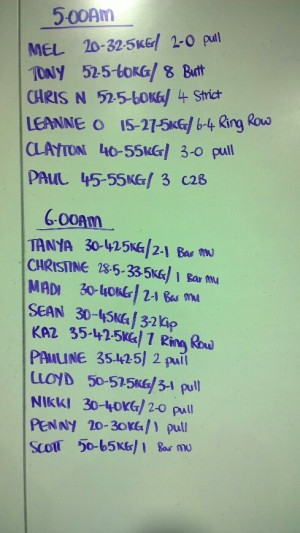 5:00AM
MEL 20-32.5KG/ 2-0 pull
TONY 52.5-60KG/ 8 Butt
CHRIS N 52.5-60KG/ 4 Strict
LEANNE O 15-27-5KG/6-4 Ring Row
CLAYTON 40-55KG/ 3-0 pull
PAUL 45-55KG/ 3 C2B
6:00AM
TANYA 30-42.5KG/2-1 Bar MU
CHRISTINE 28.5-33.5KG/ 1 Bar mu
MADI 30-40KG/ 2-1 Bar mu
SEAN 30-45KG/3-2 Kip
KAZ 35-42.5KG/ 7 Ring Row
PAULINE 35-42.5/ 2 pull
LLOYD 50-57.5KG/3-1 pull
NIKKI 30-40KG/2-0 pull
PENNY 20-30KG/1 pull
SCOTT 50-65KG/1 Bar MU